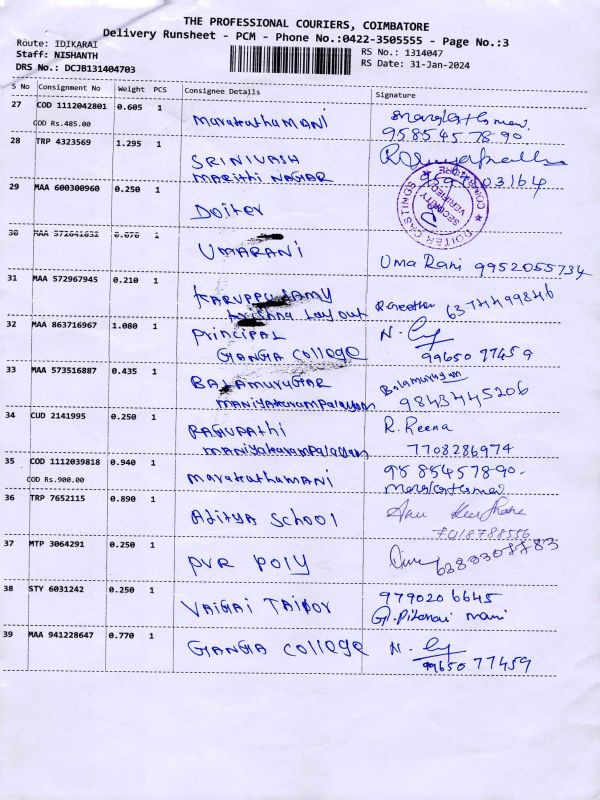 THE PROFESSIONAL COURIERS, COIMBATORE
Delivery Runsheet - PCM - Phone No.:0422-3505555 - Page No.:3
Route: IDIKARAI
Staff: NISHANTH
DRS No.: DCJB131404703
RS No.: 1314047
RS Date: 31-Jan-2024
S No Consignment No Weight PCS Consignee Details Signature
27 COD 1112042801 0.605 1 MarakathaMANI
COD Rs.485.00 9585457890
28 TRP 4323569 1.295 1 SRINIVASH
MARITHI NAGAR
29 MAA 600300960 0.250 1 Doiter
DOITER CASTINGS
SECURITY
VERIFIED
30 MAA 572641632 0.070 1 UMARANI
Uma Rani 9952055734
31 MAA 572967945 0.210 1 KARUPPUSAMY
Krishna Layout
32 MAA 863716967 1.080 1 principal
GANGA College
9965077459
33 MAA 573516887 0.435 1 BALAMURUGAR Balamurugan
maniyakarampalayam 9843445206
34 CUD 2141995 0.250 1 RAGUPAthi R. Reena
maniyakarampalayam 7708286974
35 COD 1112039818 0.940 1 marakathaMANI 9585457890.
COD Rs.900.00
36 TRP 7652115 0.890 1 Aditya School
7418788556
37 MTP 3064291 0.250 1 PVR POLY 6383308883
38 STY 6031242 0.250 1 VAIGAI TAIPOY 9790206645
39 MAA 941228647 0.770 1 GANGA College
9965077459